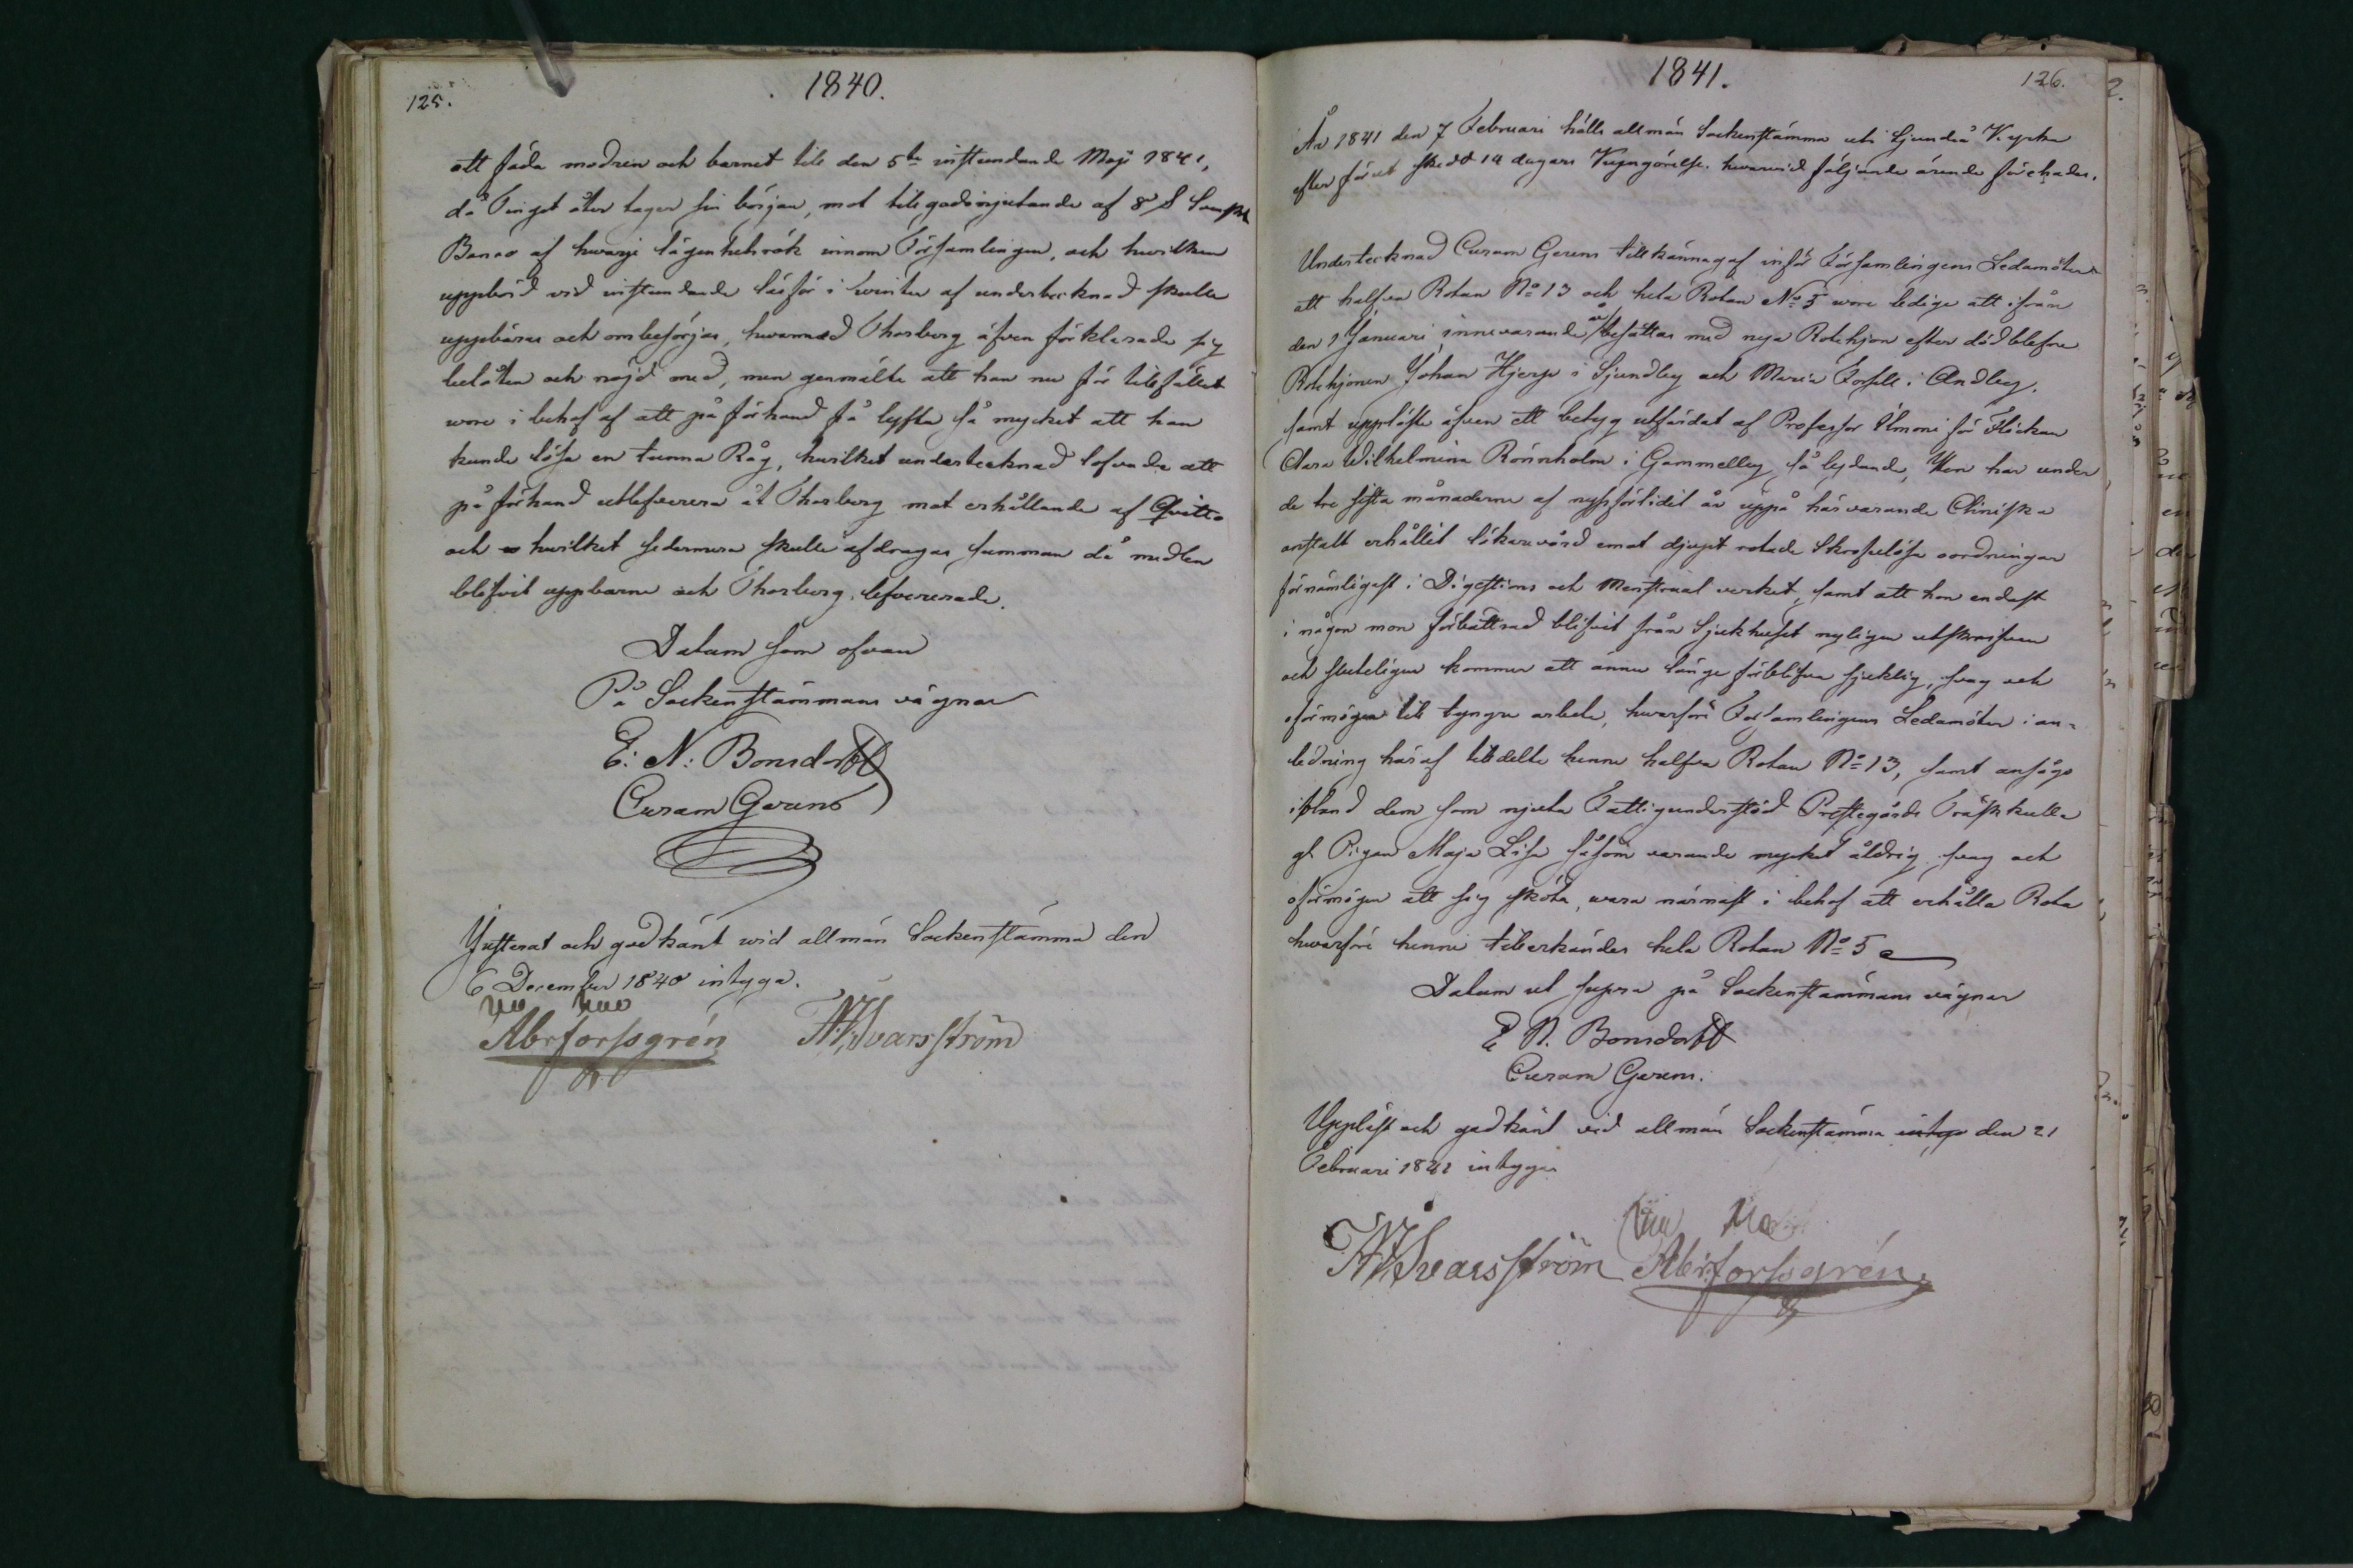 125.
1840.
att föda modren och barnet till den 5te instundande Maji 1841,
då Tinget åter tager sin början, mot tillgodonjutande af 8 S
Banco af hvarje lägenhetsrök innom Församlingen, och hvilken
uppbörd vid instundande läsför i vinter af undertecknad skulle
uppbäras och ombesörjas, hvarmed Thorberg äfven förklarade sig
belåten och nöjd med, men genmälte att han nu för tillfället
vore i behof af att på förhand få lyfta så mycket att han
kunde lösa en tunna Råg, hvilket undertecknad lofvade att
på förhand utlefverera åt Thorberg mot erhållande af Qvitto
och hvilket sedermera skulle afdragas summan då medlen
blifvit uppburne och Thorberg lefvererade.
Datum som ofvan
På Sockenstämmans vägnar
E: N: Bonsdorff
Curam Gerens
Justerat och godkänt wid allmän Sockenstämma den
6 December 1840 intyga.
Abr Forssgrén
Svarsström
1841.
126.
År 1841 den 7 Februari hölls allmän Sockenstämma uti Sjundeå Kyrka
efter förut skedd 14 dagars Kungörelse, hvarwid följande ärende förehades.
Undertecknad Curam Gerens tillkännagaf inför Församlingens Ledamöter
att halfva Rotan No 13 och hela Rotan No 5 wore ledige att ifrån
den 1 Januari innevarande år besättas med nya Rotehjon efter död blefne
Rotehjonen Johan Hjerpe i Sjundby och Maria Forsell i Andby.
samt uppläste äfven ett betyg utfärdat af Professor Ilmoni för Flickan
Clara Wilhelmina Rönnholm i Gammelby så lydande, Hon har under
de tre sista månaderne af nyssförlidit år uppå härvarande Cliniska
anstalt erhållit läkarevård emot djupt rotade Skrofulösa oordningar
förnämligast i Digestions och Menstrual verket, samt att hon endast
i någon mon förbättrad blifvit från Sjukhuset nyligen utskrifven
och sluteligen kommer att ännu länge förblifva sjuklig, svag och
oförmögen till tyngre arbete, hvarföre Församlingens Ledamöter i an-
ledning häraf tilldelte henne halfva Rotan No 13, samt ansågs
ibland dem som njuta Fattigunderstöd Prestegårds Träskkulla
gl. Pigan Maja Lisa såsom varande mycket åldrig, svag och
oförmögen att sig sköta, wara närmast i behof att erhålla Rota
hvarföre henne tillerkändes hela Rotan No 5
Datum ut supra på Sockenstämmans vägnar
E N. Bonsdorff
Curam Gerens.
Uppläst och godkänt vid allmän Sockenstämma intyga den 21
Februari 1841 intygar
Svarsström Abr Forssgrén